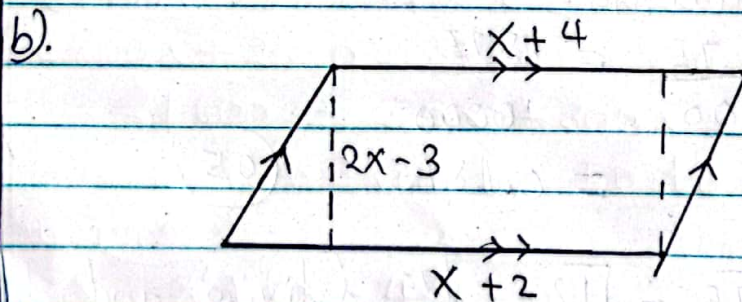 b).
x + 4
2x - 3
x + 2